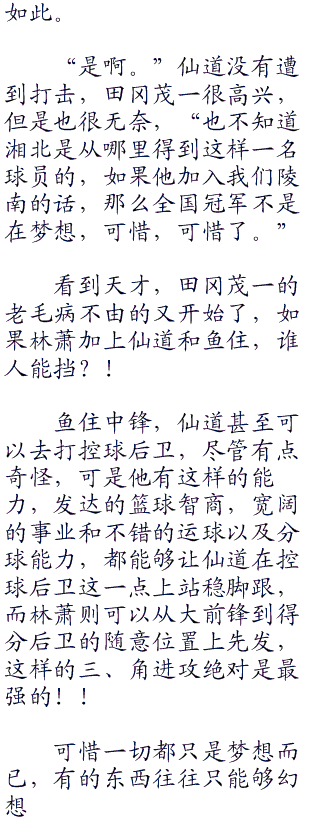 如此。
“是啊。”仙道没有遭
到打击，田冈茂一很高兴，
但是也很无奈，“也不知道
湘北是从哪里得到这样一名
球员的，如果他加入我们陵
南的话，那么全国冠军不是
在梦想，可惜，可惜了。”
看到天才，田冈茂一的
老毛病不由的又开始了，如
果林萧加上仙道和鱼住，谁
人能挡？！
鱼住中锋，仙道甚至可
以去打控球后卫，尽管有点
奇怪，可是他有这样的能
力，发达的篮球智商，宽阔
的事业和不错的运球以及分
球能力，都能够让仙道在控
球后卫这一点上站稳脚跟，
而林萧则可以从大前锋到得
分后卫的随意位置上先发，
这样的三、角进攻绝对是最
强的！！
可惜一切都只是梦想而
已，有的东西往往只能够幻
想